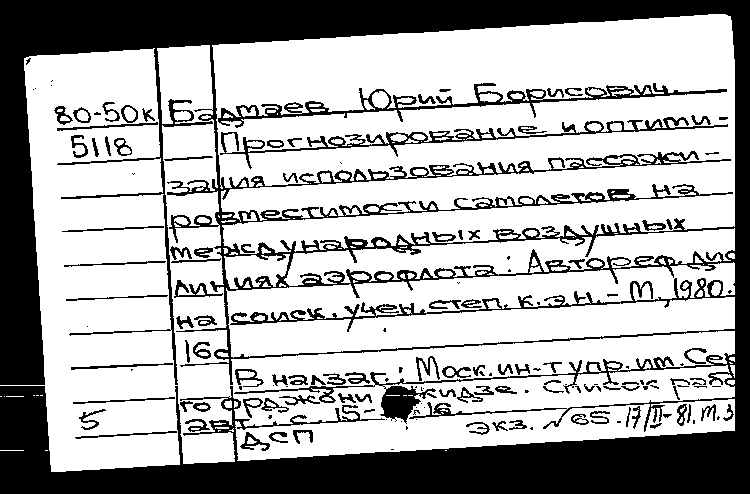 80-50к Бадмаев, Юрий Борисович.
5118 Прогнозирование и оптими-
зация использования пассажи-
ровместимости самолетов на
международных воздушных
линиях аэрофлота: Автореф. дис
на соиск. учен. степ. к.э.н. - М., 1980.
16с.
В надзаг.: Моск. ин-т упр. им. Сер
го Орджони кидзе. Список рабо
5 авт.: с. 15- 16.
ДСП экз. №65. 17/II-81. М.З